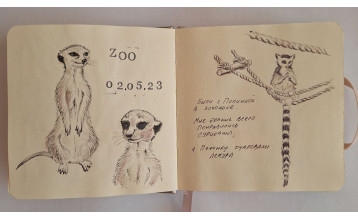 ZOO
02.05.23
Были с Полиной
в зоопарке
Мне больше всего
понравились
сурикаты,
а
лемура